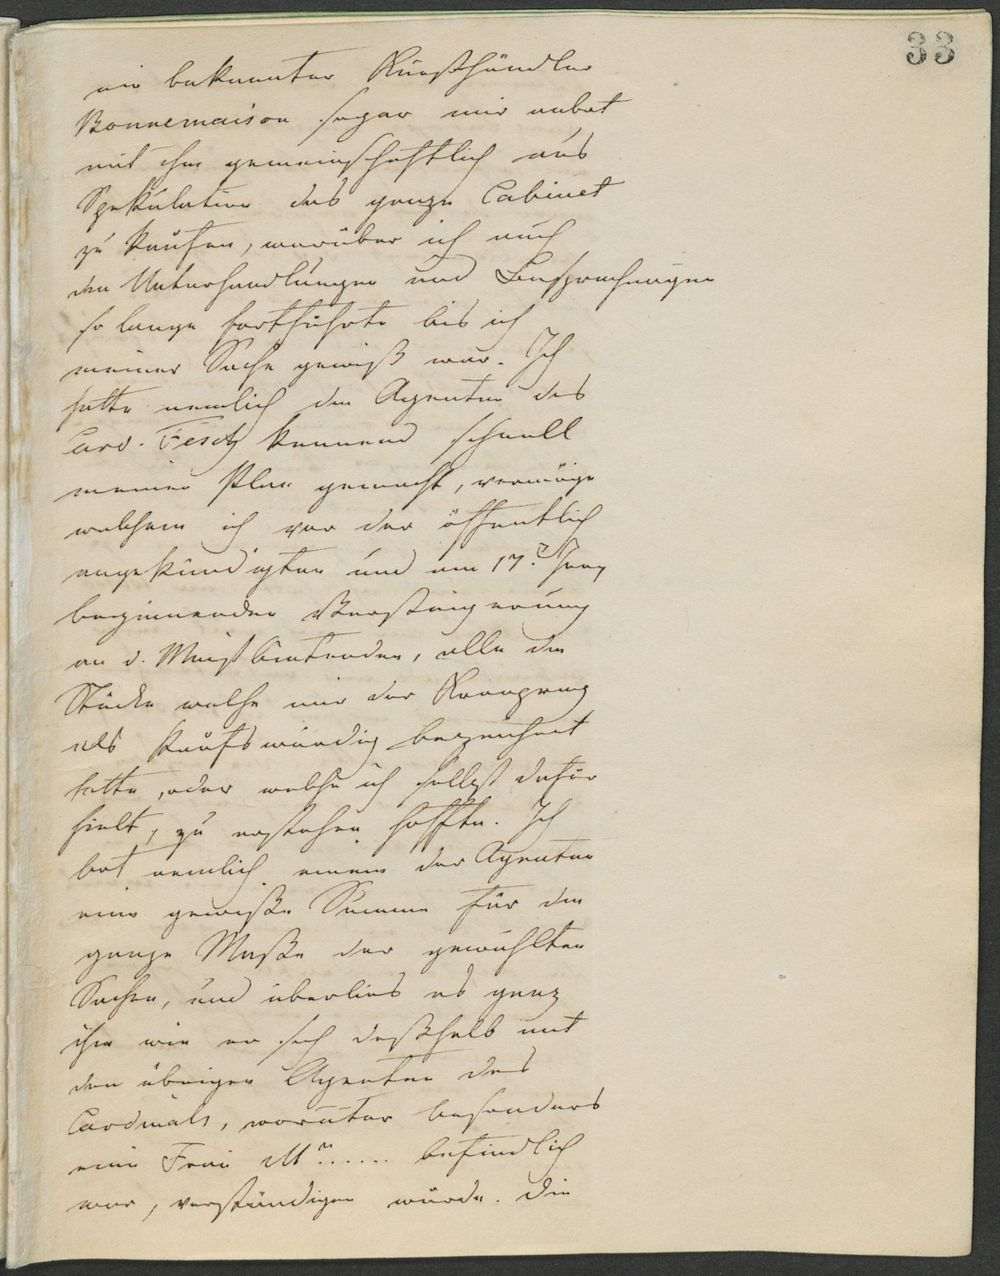 33
ein bekannter Kunsthändler
Bonnemaison sogar mir anbot
mit ihm gemeinschaftlich aus
Spekulation das ganze Cabinet
zu kaufen, worüber ich auch
die Unterhandlungen und Besprechungen
so lange fortführte bis ich
meiner Sache gewiß war. Ich
hatte nemlich die Agenten des
Card. Fesch kennend schnell
meinen Plan gemacht, vermöge
welchem ich vor der öffentlich
angekündigten und am 17t. Juny
beginnenden Versteigerung
an d. Meistbietenden, alle die
Stücke welche mir der Kronprinz
als kaufswürdig bezeichnet
hatte, oder welche ich selbst dafür
hielt, zu erstehen hoffte. Ich
bot nemlich einem der Agenten
eine gewiße Summe für die
ganze Maße der gewählten
Sachen, und überlies es ganz
ihm wie er sich deßhalb mit
den übrigen Agenten des
Cardinals, worunter besonders
eine Frau M...... befindlich
war, verständigen würde. Die